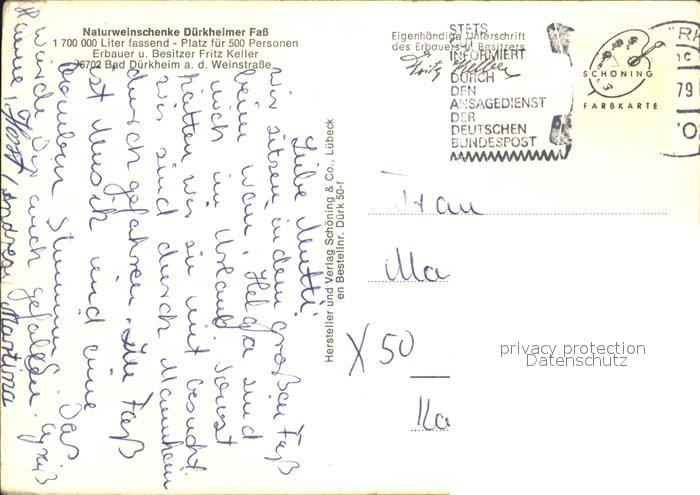 Naturweinschenke Dürkheimer Faß
1 700 000 Liter fassend - Platz für 500 Personen
Erbauer u. Besitzer Fritz Keller
6702 Bad Dürkheim a. d. Weinstraße
Eigenhändige Unterschrift
des Erbauers u. Besitzers
Fritz Keller
STETS
INFORMIERT
DURCH
DEN
ANSAGEDIENST
DER
DEUTSCHEN
BUNDESPOST
SCHÖNING
FARBKARTE
79
Hersteller und Verlag Schöning & Co., Lübeck
en Bestellnr. Dürk 50-f
Liebe Mutti!
Wir sitzen in dem großen Faß
beim Wein. Helga sind
mich im Urlaub sonst
hätten wir sie mit besucht
wir sind durch Mannheim
durch gefahren. Im Faß
ist Musik und eine
Bomben Stimmung. Das
würde Dir auch gefallen.
Hanne, Horst, Andreas, Martina
Frau
Ma
X 50
Ka
privacy protection
Datenschutz